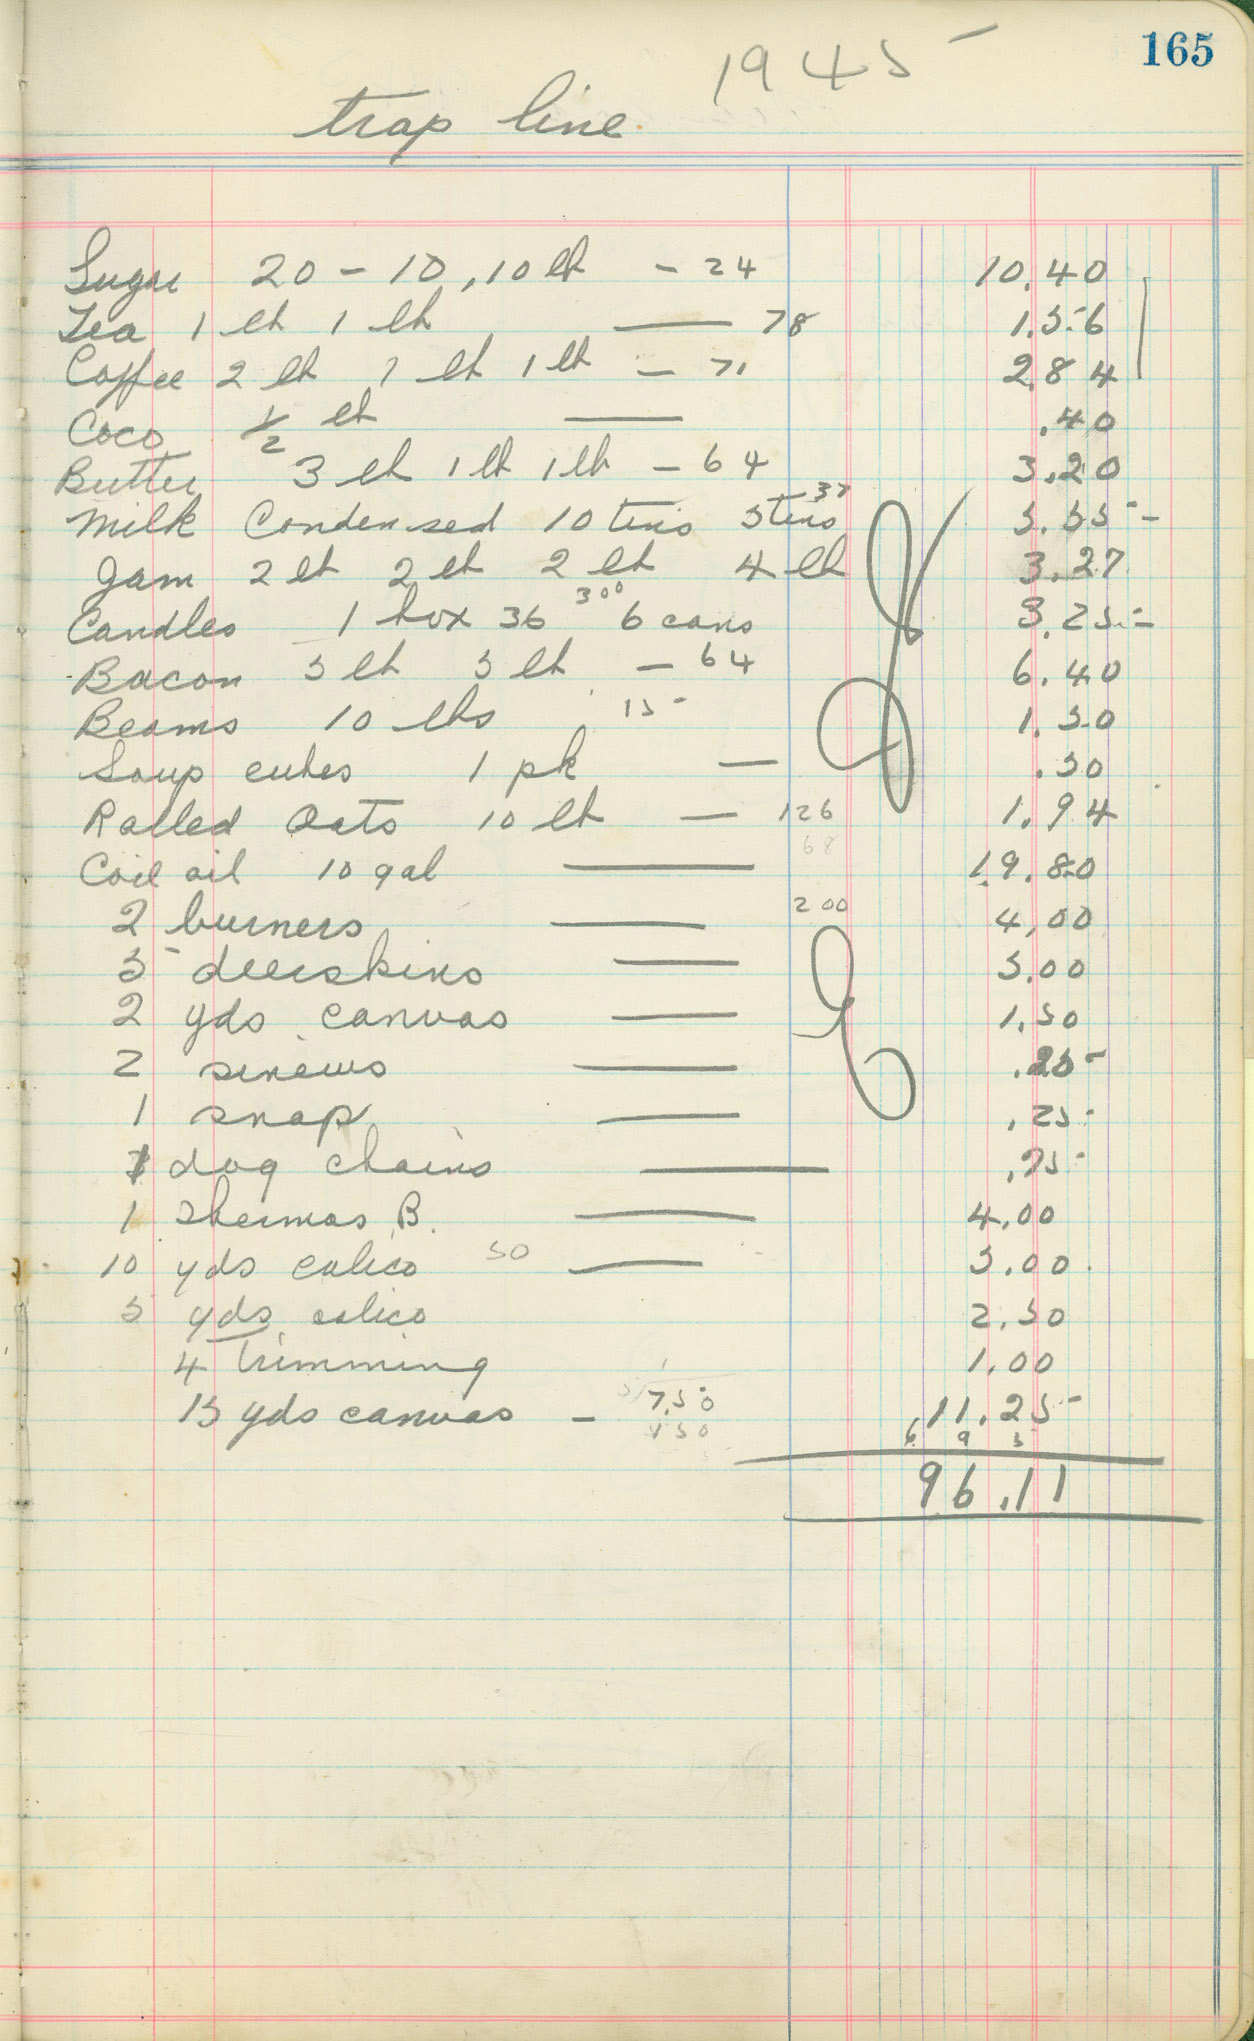 165
1945
trap line
Sugar 20 - 10, 10 lb - 24 10.40
Tea 1 lb 1 lb — 78 1.56
Coffee 2 lb 1 lb 1 lb - 71 2.84
Coco 1/2 lb — .40
Butter 3 lb 1 lb 1 lb - 64 3.20
Milk Condensed 10 tins 5 tins 37 5.55
Jam 2 lb 2 lb 2 lb 4 lb 3.27
Candles 1 box 36 300 6 cans 3.25
Bacon 5 lb 5 lb - 64 6.40
Beams 10 lbs 15 1.50
Soup cubes 1 pk — .50
Rolled Oats 10 lb — 126 1.94
68
Coil oil 10 gal — 19.80
2 burners — 200 4.00
5 deerskins — 5.00
2 yds canvas — 1.50
2 sinews — .25
1 snap — .25
dog chains — .75
1 Thermos B. — 4.00
10 yds calico 50 — 5.00
5 yds calico 2.50
4 Trimming 1.00
15 yds canvas - 7.50 11.25
6 9 5
96.11